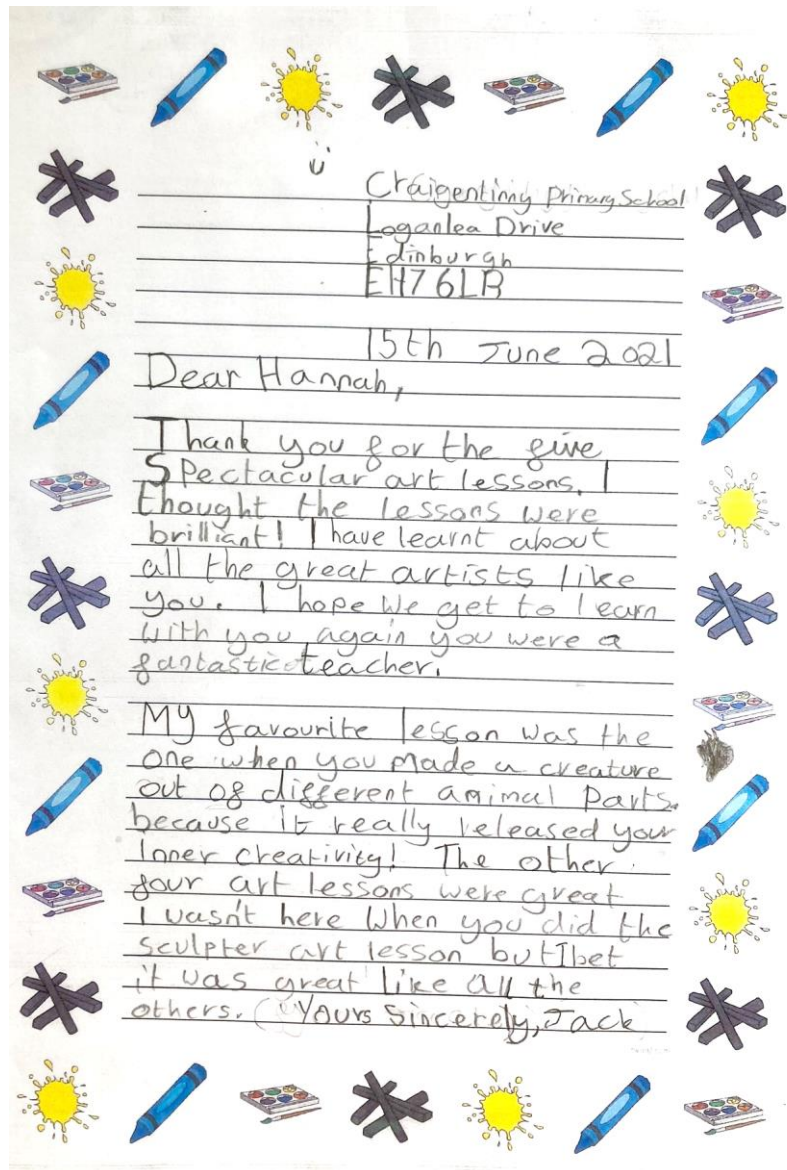 Craigentinny Primary School
Loganlea Drive
Edinburgh
EH7 6LR
15th June 2021
Dear Hannah,
Thank you for the five
Spectacular art lessons. I
thought the lessons were
brilliant! I have learnt about
all the great artists like
you. I hope we get to learn
with you again you were a
fantastic teacher.
My favourite lesson was the
one when you made a creature
out of different animal parts.
because it really released your
Inner creativity! The other
four art lessons were great
I wasn't here when you did the
sculpter art lesson but I bet
it was great like all the
others. Yours Sincerely, Jack